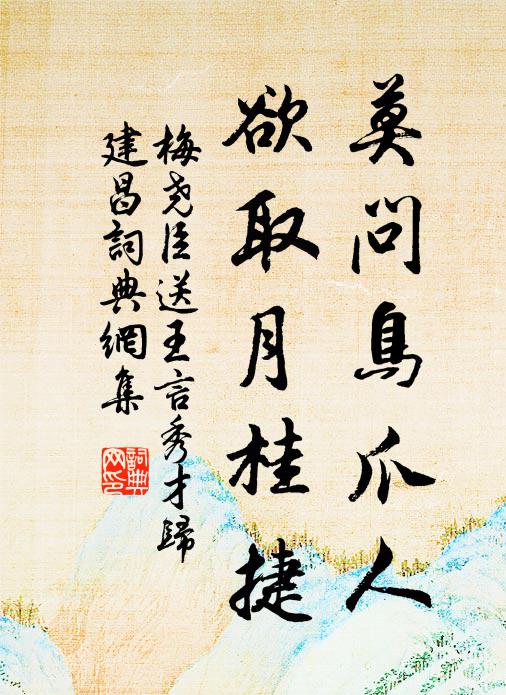 莫問鳥爪人
欲取月桂捷
梅尧臣送王言秀才歸
建昌詞典網集
詞典网印